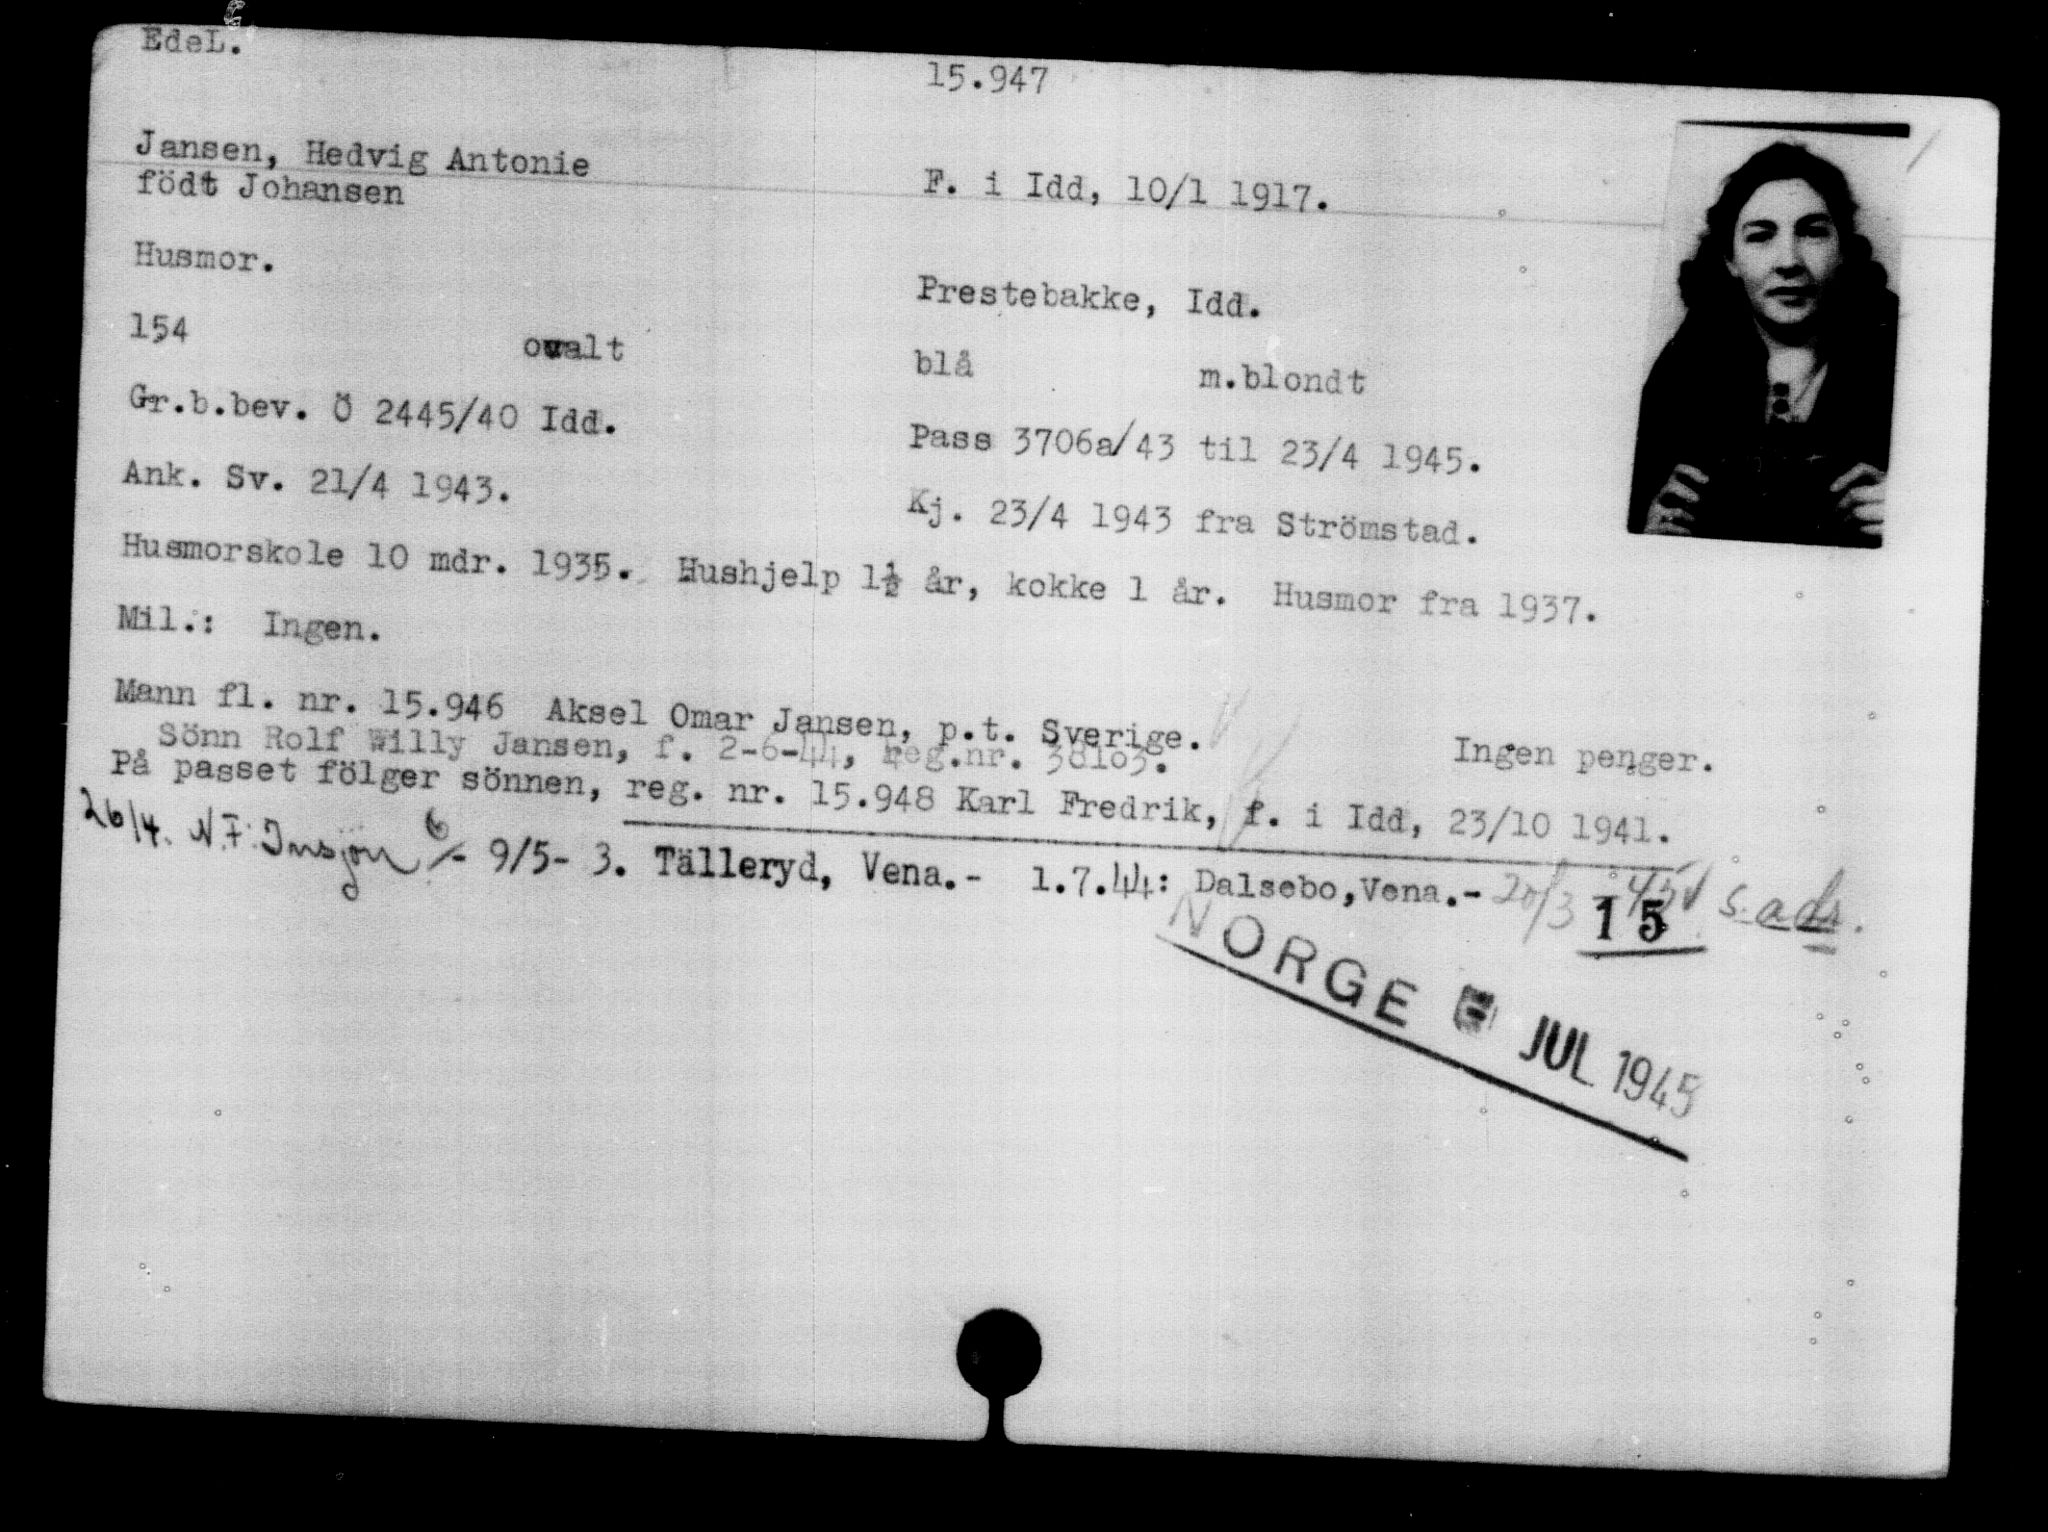 EdeL.
15.947
Jansen, Hedvig Antonie
födt Johansen
F. i Idd, 10/1 1917.
Husmor.
Prestebakke, Idd.
154 ovalt
blå m.blondt
Gr.b.bev. Ö 2445/40 Idd.
Pass 3706a/43 til 23/4 1945.
Ank. Sv. 21/4 1943.
Kj. 23/4 1943 fra Strömstad.
Husmorskole 10 mdr. 1935. Hushjelp 1½ år, kokke 1 år. Husmor fra 1937.
Mil.: Ingen.
Mann fl. nr. 15.946 Aksel Omar Jansen, p.t. Sverige.
Ingen penger.
Sönn Rolf Willy Jansen, f. 2-6-44, reg.nr. 38103.
På passet fölger sönnen, reg. nr. 15.948 Karl Fredrik, f. i Idd, 23/10 1941.
26/4. N.F. Insjön 6/- 9/5- 3. Tälleryd, Vena.- 1.7.44: Dalsebo,Vena.- 20/3 -45 s. adr.
15
NORGE JUL 1945